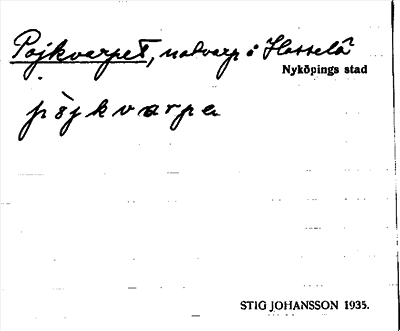 Pojkvarpet, notvarp i Hasselö
Nyköpings stad
pòjkvarpə
STIG JOHANSSON 1935.